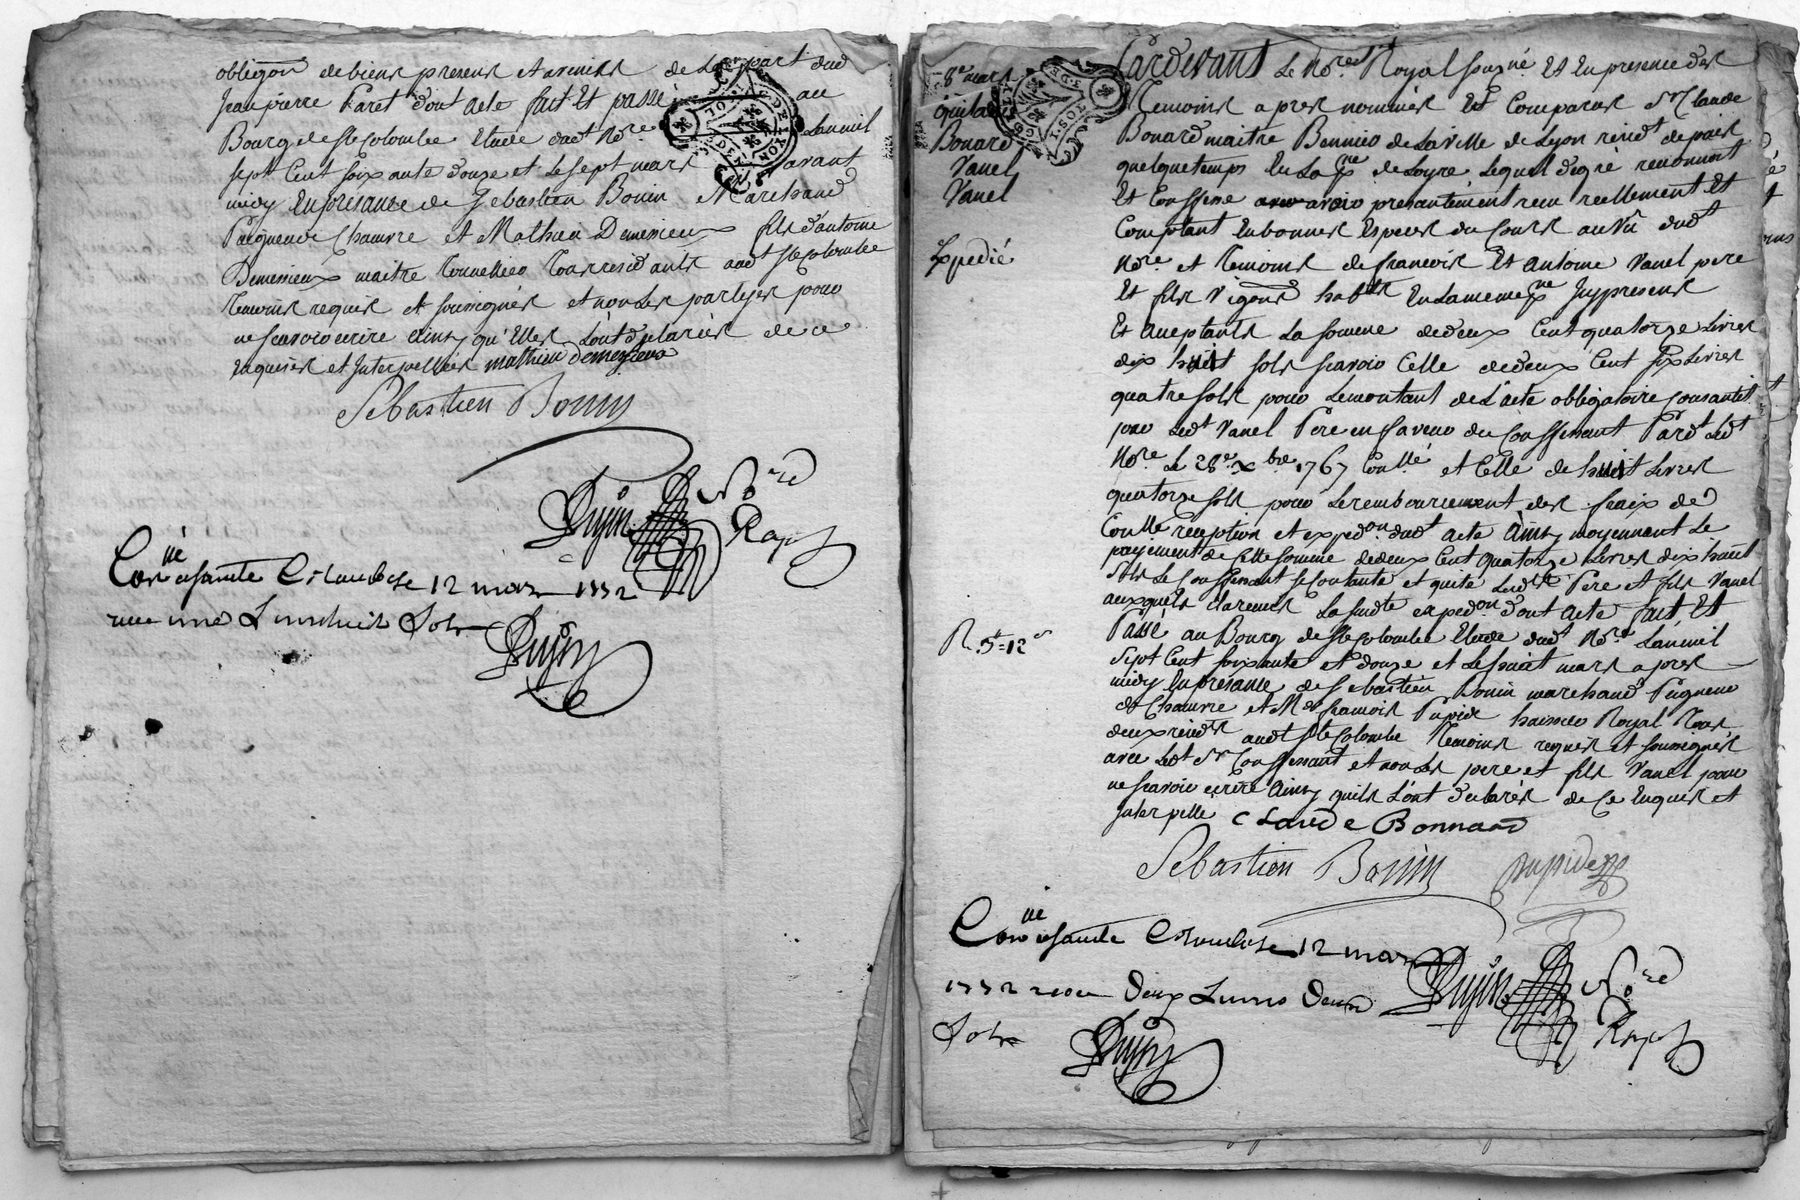 obligeon de biens presens et avenirs de la part dud
Jean pierre Paret dont acte fait Et passé au
Bourg de Ste Colombe Etude dud Nore Lanmil
sept Cent soixante douze et le sept mars avant
midy En présance de Sebastien Bonin Marchand
Peigneur de Chanvre et Mathieu Demezieux fils d'antoine
Demezieux maitre Tonnellier Tous residants audt Ste Colombe
temoins requis et soussignés et non les parties pour
ne scavoir ecrire ainsy qu'Elles l'ont declarées de ce
enquises et Interpellées mathieu demezieux
Sebastien Bonin
Dujin Nore
Royal
Conné a sainte Colombe 12 mars 1772
reçu une L huit Sols
Dujin
8e mars
quitance
Bonard
Vanel
Vanel
Expedié
R. 5t = 12s
Pardevant Le Nore Royal sousné Et En presence des
Temoins apres nommés Est Comparut Sr Claude
Bonard maitre Bennier de La ville de Lyon residt depuis
quelque temps En La psse de Loyre Lequel de gré reconnoit
Et Confesse avoir presentement recu reellement Et
Comptant En bonnes Especes du Cours au Vû dudt
Nore et temoins de francois Et antoine Vanel pere
Et fils Vignerons habts En La meme psse Icy presens
Et aceptants La somme de deux Cent quatorze Livres
dix huit sols scavoir Celle de deux Cent six Livres
quatre sols pour Le montant de L'acte obligatoire Consantit
par Ledt Vanel Pere en faveur du Confessant Pardt Ledt
Nore Le 28e xbre 1767 Conllé et Celle de huit Livres
quatorze sols pour Le remboursement des fraix de
Conlle réception et expedon dudt acte Ainsy moyennant Le
payement de Cette somme de deux Cent quatorze Livres dix huit
sols Le Confessant se Contante et quite Lesdts Pere et fils Vanel
auxquels La susdte expedon dont acte fait Et
Passé au Bourg de Ste Colombe Etude dudt Nore Lanmil
Sept Cent soixante et douze et Le huit mars apres
midy En présance de Sebastien Bonin marchand Peigneur
de Chanvre et Me francois Pupier huissier Royal Tous
deux residts audt Ste Colombe Temoins requis et soussignés
avec Ledt Sr Confessant et non Les pere et fils Vanel pour
ne scavoir ecrire Ainsy quils L'ont declarés de Ce Enquis et
Interpellé Claude Bonnard
Sebastien Bonin
Dujin Nore
Royal
Conné a sainte Colombe 12 mars
1772 reçu Deux Livres Deux
Sols
Dujin